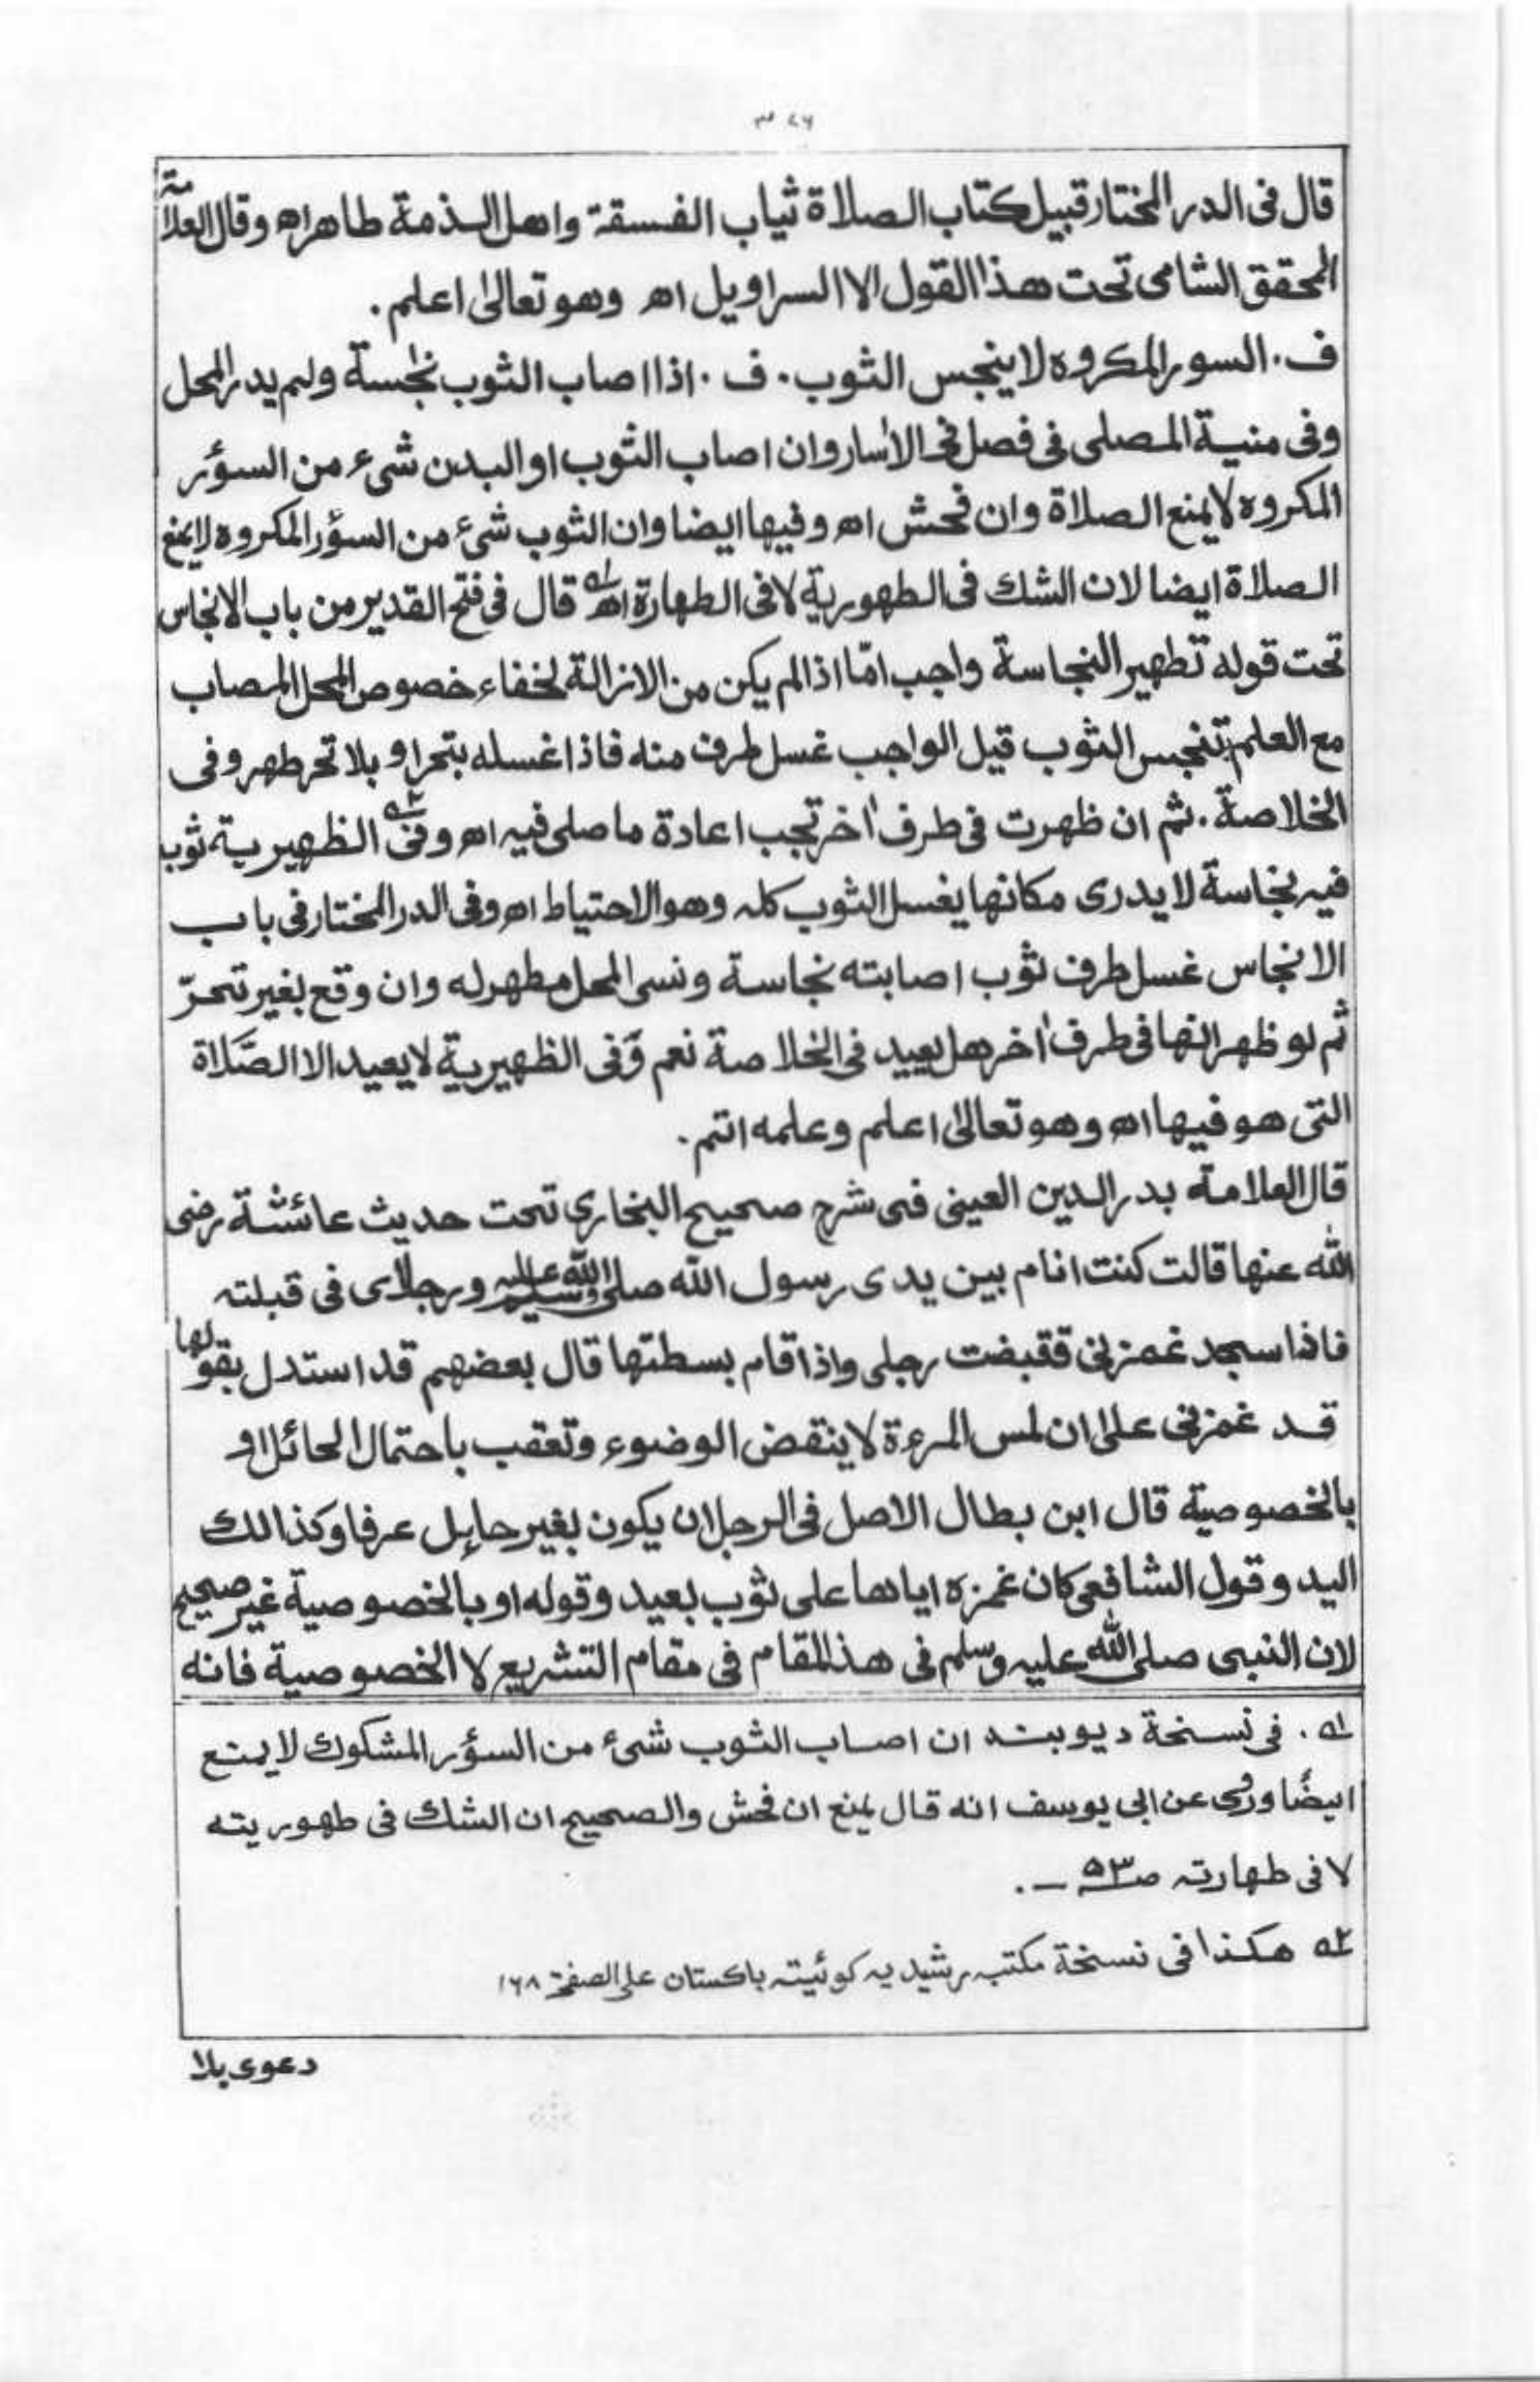 ٣٢٦
قال فى الدر المختار قبيل كتاب الصلاة ثياب الفسقة واهل الذمة طاهراه وقال العلامة
المحقق الشامى تحت هذا القول الا السراويل اه وهو تعالىٰ اعلم.
ف. السور المكروه لا ينجس الثوب. ف. اذا اصاب الثوب نجاسة ولم يدر المحل
وفى منية المصلى فى فصل فى الاٰسار وان اصاب الثوب او البدن شىء من السؤر
المكروه لا يمنع الصلاة وان فحش اه وفيها ايضا وان الثوب شىء من السؤر المكروه لا يمنع
الصلاة ايضا لان الشك فى الطهورية لا فى الطهارة اه ١ قال فى فتح القدير من باب الانجاس
تحت قوله تطهير النجاسة واجب امّا اذا لم يكن من الازالة لخفاء خصوص المحل المصاب
مع العلم بتنجس الثوب قيل الواجب غسل طرف منه فاذا غسله بتحر او بلا تحر طهر وفى
الخلاصة. ثم ان ظهرت فى طرف اٰخر تجب اعادة ما صلى فيه اه وفى ٢ الظهيرية ثوب
فيه نجاسة لا يدرى مكانها يغسل الثوب كله وهو الاحتياط اه وفى الدر المختار فى باب
الانجاس غسل طرف ثوب اصابته نجاسة ونسى المحل مطهر له وان وقع بغير تحرّ
ثم لو ظهر انها فى طرف اٰخر هل يعيد فى الخلاصة نعم وَفى الظهيرية لا يعيد الا الصَّلاة
التى هو فيها اه وهو تعالىٰ اعلم وعلمه اتم.
قال العلامة بدر الدين العينى فى شرح صحيح البخارى تحت حديث عائشة رضى
الله عنها قالت كنت انام بين يدى رسول الله صلى الله عليه وسلم ورجلاى فى قبلته
فاذا سجد غمزنى فقبضت رجلى واذا قام بسطتها قال بعضهم قد استدل بقولها
قد غمزنى علىٰ ان لمس المرءة لا ينقض الوضوء وتعقب باحتمال الحائل او
بالخصوصية قال ابن بطال الاصل فى الرجل ان يكون بغير حايل عرفا وكذالك
اليد وقول الشافعى كان غمزه اياها على ثوب بعيد وقوله او بالخصوصية غير صحيح
لان النبى صلى الله عليه وسلم فى هذا المقام فى مقام التشريع لا الخصوصية فانه
١ه. فى نسخة ديوبند ان اصاب الثوب شىء من السؤر المشكوك لا يمنع
ايضًا وروى عن ابى يوسف انه قال يمنع ان فحش والصحيح ان الشك فى طهوريته
لا فى طهارته ص٥٣ ــ.
٢ه هكذا فى نسخة مكتبه رشيديه كوئيته باكستان على الصفحة ١٦٨
دعوى بلا